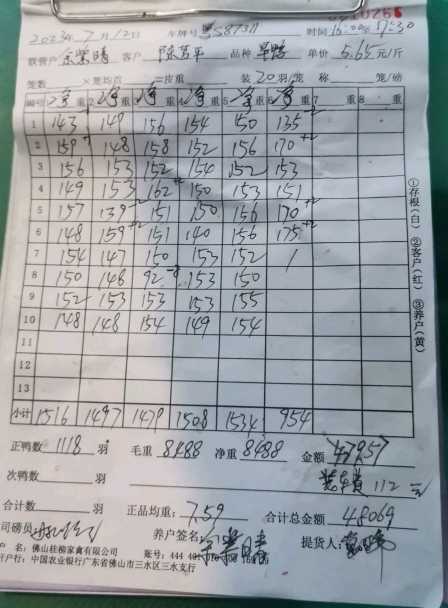 2023年7月12日 车牌号 58731 时间 16:00 17:30
联营户 余荣晴 客户 品种 单价 5.65元/斤
笼数 ×笼均首 一皮重 装20羽/笼 称 笼/磅
编号 净重 2净重 净重 净重 5净重 净重 7 重 8 重
1 143 149 156 154 150 135
2 159 148 158 152 156 170
3 156 153 152 154 152 153
4 149 153 162 150 153 151
5 157 139 151 150 156 170
6 148 159 151 140 156 175
7 154 147 150 153 152 /
8 150 148 92 153 150
9 152 153 153 153 155
10 148 148 154 149 154
11
12
13
小计 1516 1497 1479 1508 1534 954
①存根(白) ②客户(红) ③养户(黄)
正鸭数 1118 羽 毛重 8488 净重 8488 金额 47957
次鸭数 羽 装车费 112元
合计数 羽 正品均重: 7.59 合计总金额 48069
司磅员 养户签名: 余荣晴 提货人:
户 名: 佛山桂柳家禽有限公司 账号: 444
开户行: 中国农业银行广东省佛山市三水区三水支行